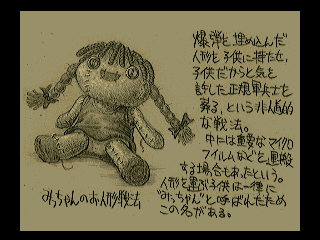 爆弾を埋め込んだ
人形を子供に持たせ、
子供だからと気を
許した正規軍兵士を
葬る、という非人道的
な戦法。
中には重要なマイクロ
フィルムなどを運搬
する場合もあったという。
人形を運ぶ子供は一種に
"みっちゃん"と呼ばれたため
この名がある。
みっちゃんのお人形戦法